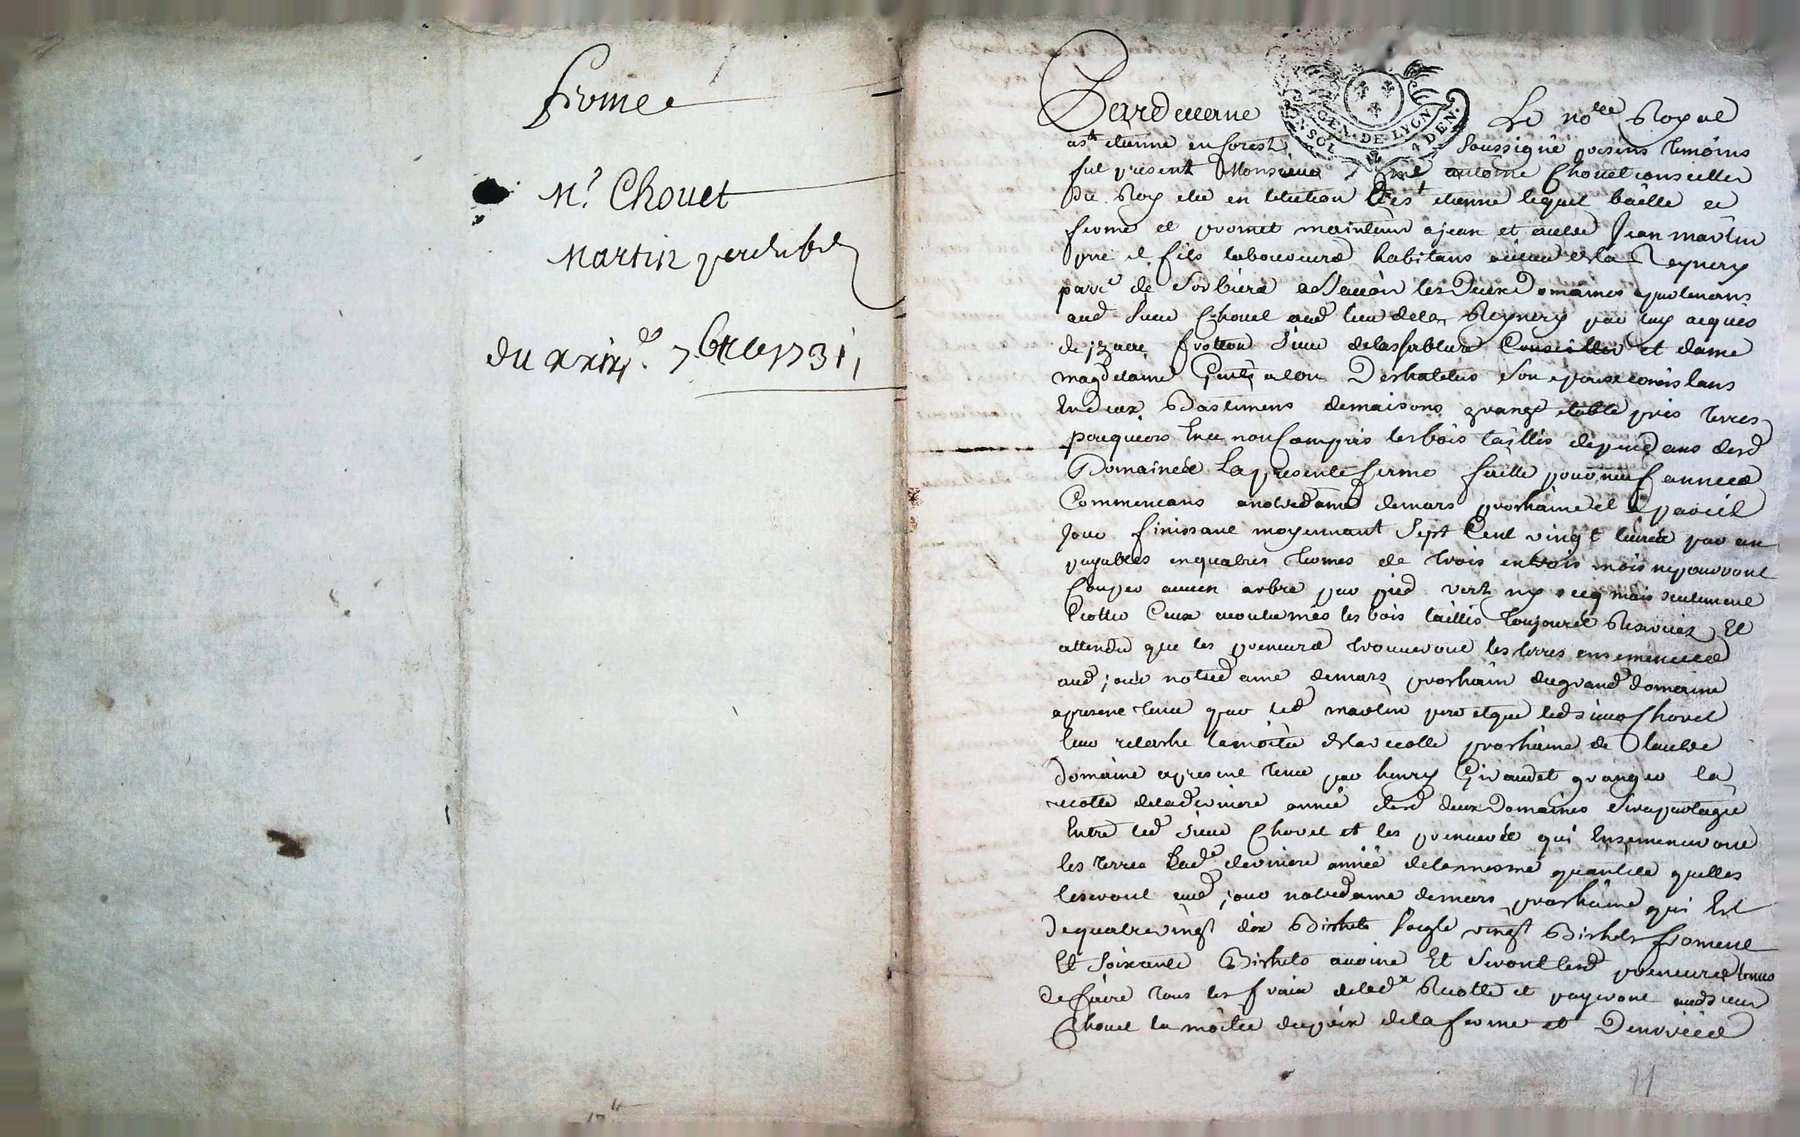 ferme
Mr. Chouet
Martin pere et fils
du xxixe. 7bre 1731
GEN. DE LYON
Pardevant Le nore Royal
a st etienne en forest soussigné presens temoins
fut present Monsieur antoine Chouet conseiller
du Roy elu en lelection de st etienne lequel baille a
ferme et promet maintenir a jean et autre Jean martin
pere et fils laboureurs habitans au lieu de la Reynery
parre de Sorbiere a Sauoir les deux Domaines apartenans
aud Sieur Chouet aud lieu de la Reynery par luy acquis
de frotton Sieur de Conseiller et dame
magdelaine son epouse consistans
En deux Bastimens de maisons grange etable prés terres
paquiers non Compris les bois taillis dependans desd
Domaines La presente ferme faitte pour neuf années
Commencans a notredame de mars prochaine et a pareil
jour finissant moyennant Sept Cent vingt liures par an
payables en quatres termes de trois en trois mois ne pourront
Couper aucun arbre par pied vert ny secq mais seulement
les bois taillis toujours Reserués Et
attendu que les preneurs trouueront les terres ensemencées
aud jour notredame de mars prochain du grand domaine
a present tenu par led martin pere et que led sieur Chouet
leur relache la moitié de la recolte prochaine de lautre
domaine a present tenu par henry Giraudet granger la
recolte de la derniere année desd deux Domaines Sera partagée
Entre led Sieur Chouet et les preneurs qui Ensemenceront
les terres lad derniere année de la mesme quantité quelles
le seront aud jour notredame de mars prochaine qui Est
de quatre vingt dix Bichets Soigle vingt Bichets froment
Et Soixante Bichets auoine Et Seront lesd preneurs tenus
de faire tous les fraix de lade Recolte et payeront aud sieur
Chouet la moitié du prix de la ferme et Denrées
11